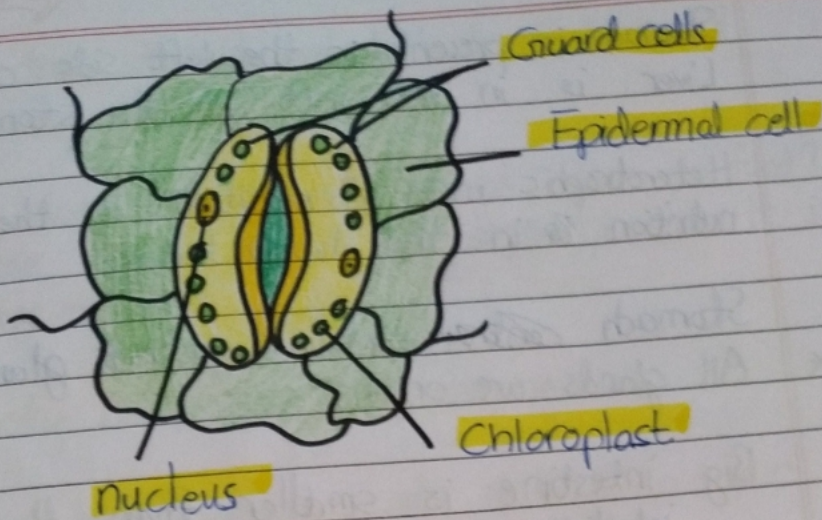 Guard cells
Epidermal cell
Chloroplast
nucleus